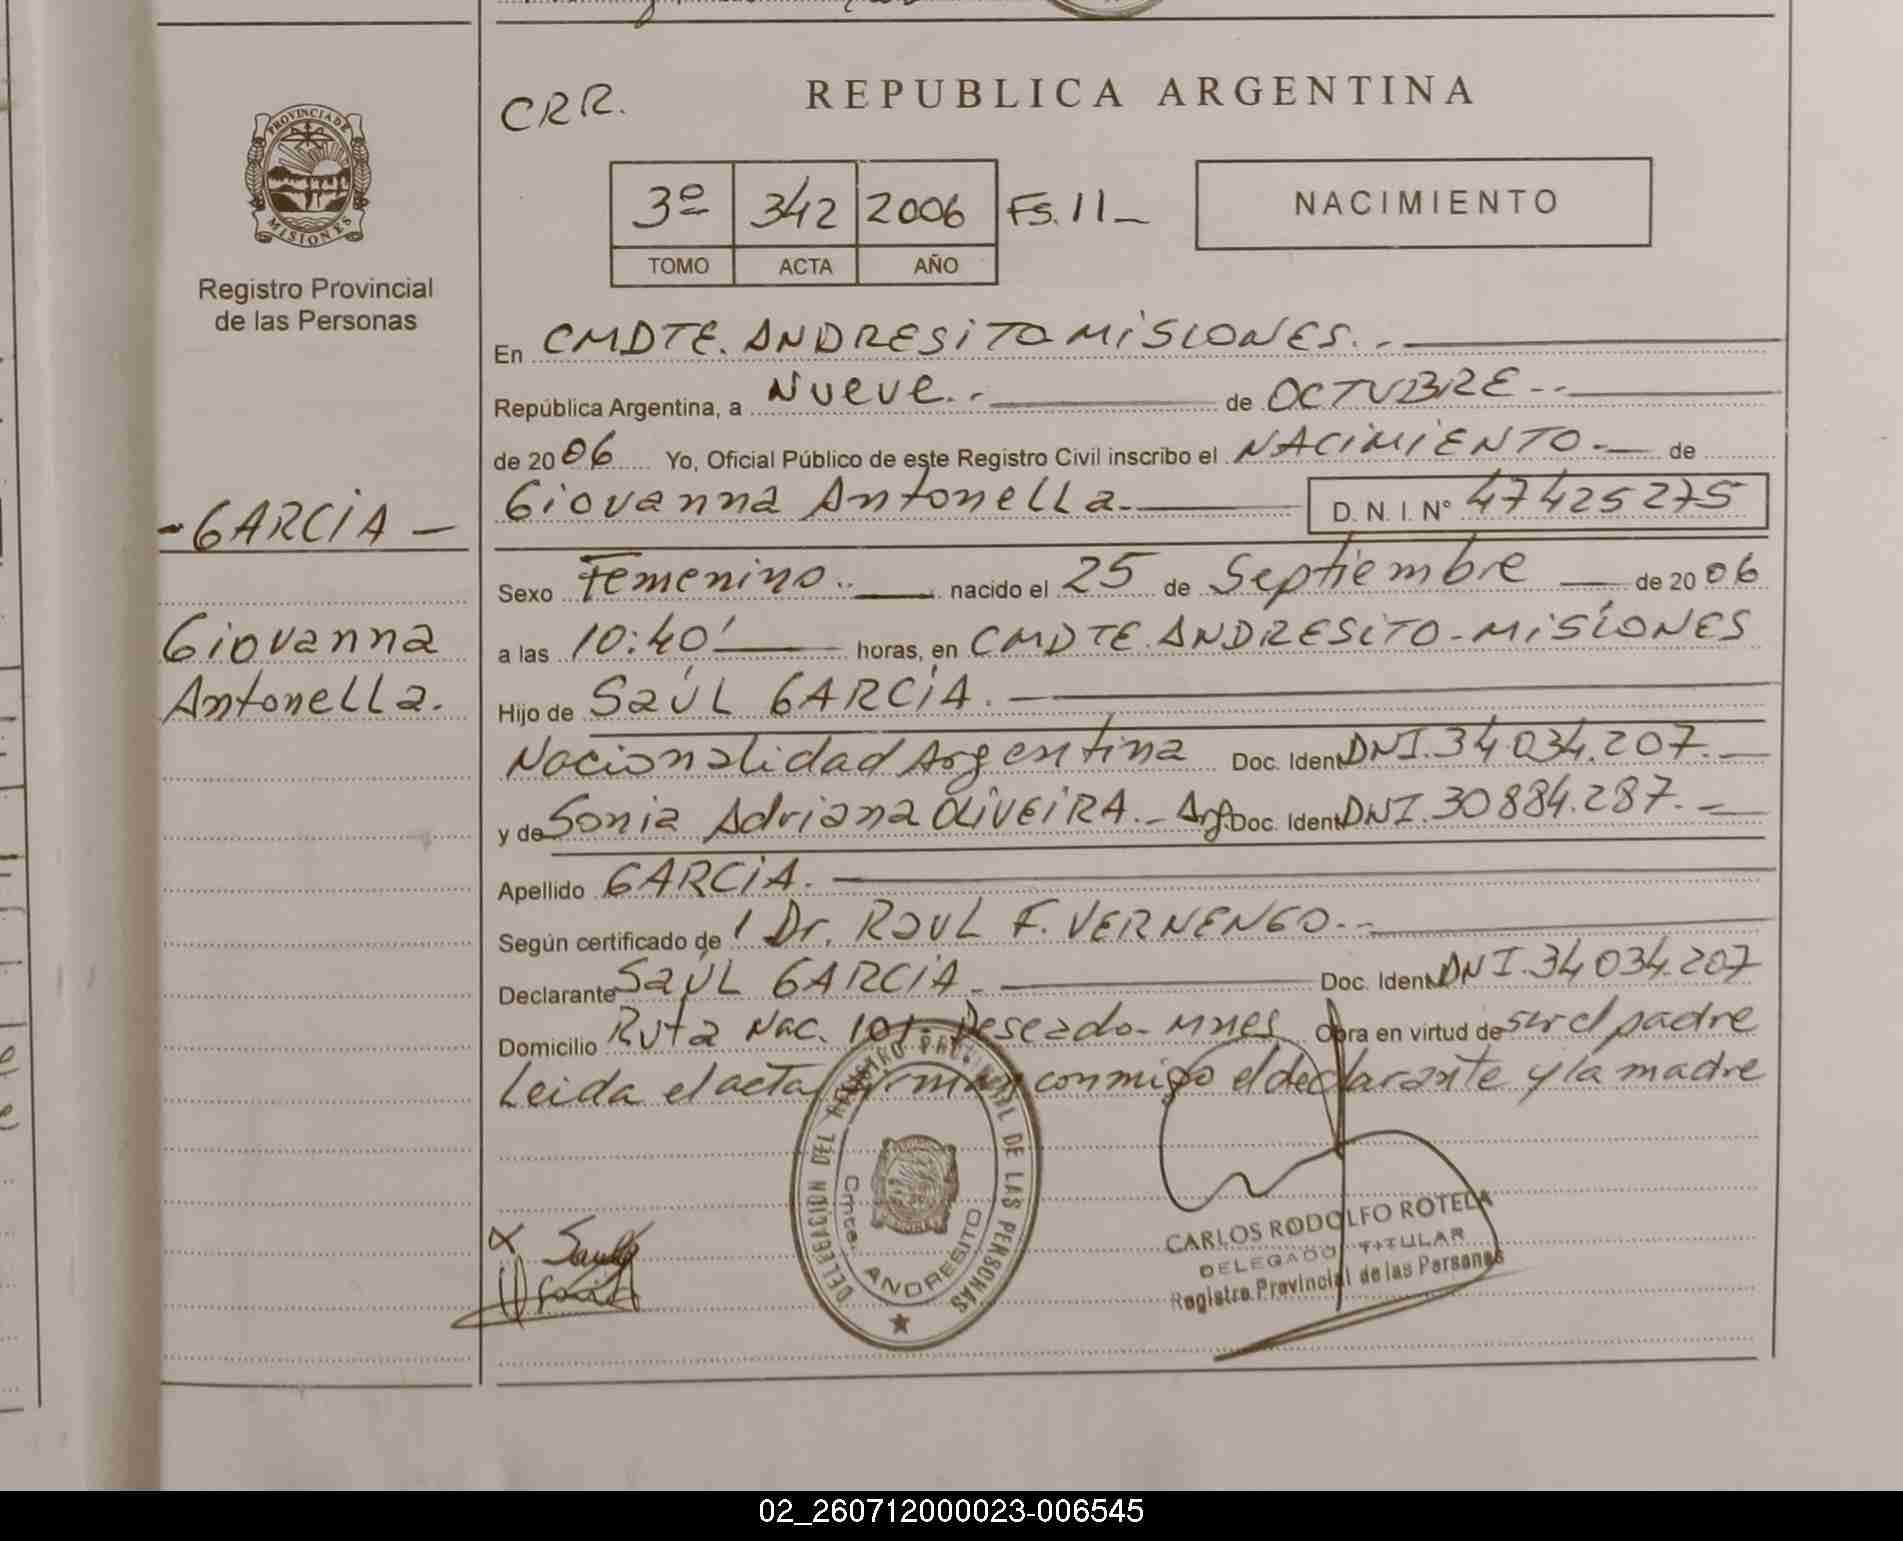 CRR.
REPUBLICA ARGENTINA
PROVINCIA DE
MISIONES
Registro Provincial
de las Personas
3º 342 2006 Fs. 11_
TOMO ACTA AÑO
NACIMIENTO
En CMDTE. ANDRESITO MISIONES.
República Argentina, a Nueve.. de OCTUBRE --
de 2006 Yo, Oficial Público de este Registro Civil inscribo el NACIMIENTO.- de
- GARCIA -
Giovanna Antonella. D. N. I. Nº 47425275
Sexo Femenino.. nacido el 25 de Septiembre de 2006
Giovanna
Antonella.
a las 10:40' horas, en CMDTE. ANDRESITO - MISIONES
Hijo de SaúL GARCÍA.
Nacionalidad Argentina Doc. Ident DNI. 34.034.207.-
y de Sonia Adriana OLIVEIRA. - Arg. Doc. Ident DNI. 30884.287.-
Apellido GARCIA.
Según certificado de Dr. RAUL F. VERNENGO.--
Declarante SaúL GARCÍA. Doc. Ident DNI. 34 034.207
Domicilio Ruta Nac. 101. Deseado - Mnes Obra en virtud de ser el padre
Leida el acta firman conmigo el declarante y la madre
DELEGACION DEL REGISTRO PROVINCIAL DE LAS PERSONAS
Cmte. ANDRESITO
CARLOS RODOLFO ROTELA
DELEGADO TITULAR
Registro Provincial de las Personas
02_260712000023-006545